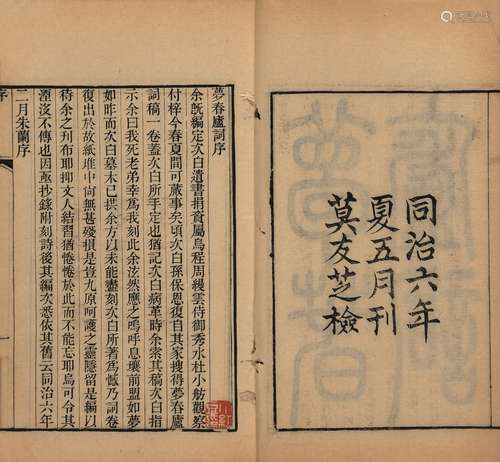 同治六年
夏五月刊
莫友芝檢
夢春廬詞序
余旣編定次白遺書捐資屬烏程周縵雲侍御秀水杜小舫觀察
付梓今春夏間可蕆事矣頃次白孫保恩復自其家搜得夢春廬
詞稿一卷蓋次白所手定也猶記次白病革時余索其稿次白指
示余曰我死老弟幸爲我刻此余泫然應之嗚呼息壤前盟如夢
如昨而次白墓木已拱余方以未能盡刻次白所著爲憾乃詞卷
復出於故紙堆中尙無甚殘損是豈九原呵護之靈隱留是編以
待余之刊布耶抑文人結習猶惓惓於此而不能忘耶烏可令其
湮沒不傳也因亟抄錄附刻詩後其編次悉依其舊云同治六年
二月朱蘭序
序